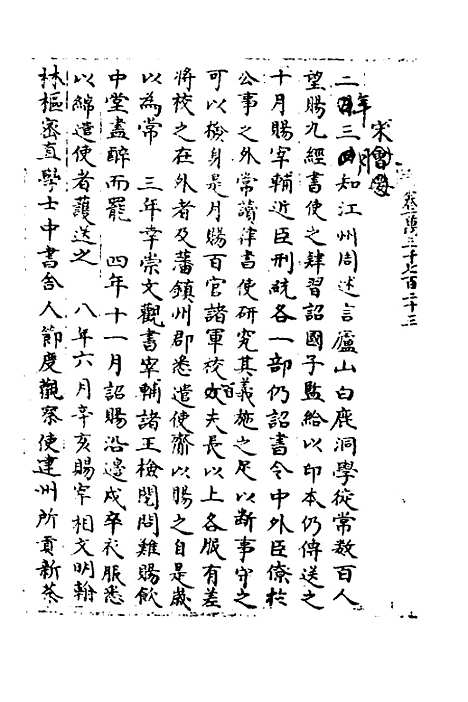 宋會要
卷一萬三千七百二十三
二年三月知江州周述言廬山白鹿洞學徒常數百人
望賜九經書使之肄習詔國子監給以印本仍傳送之
十月賜宰輔近臣刑統各一部仍詔書令中外臣僚於
公事之外常讀律書使研究其義施之足以斷事守之
可以檢身是月賜百官諸軍校百夫長以上各服有差
將校之在外者及蕃鎮州郡悉遣使齎以賜之自是歲
以為常　三年幸崇文觀書宰輔諸王檢閱問難賜飲
中堂盡醉而罷　四年十一月詔賜沿邊戍卒衣服悉
以綿遣使者護送之　八年六月辛亥賜宰相文明翰
林樞密直學士中書舍人節度觀察使建州所貢新茶